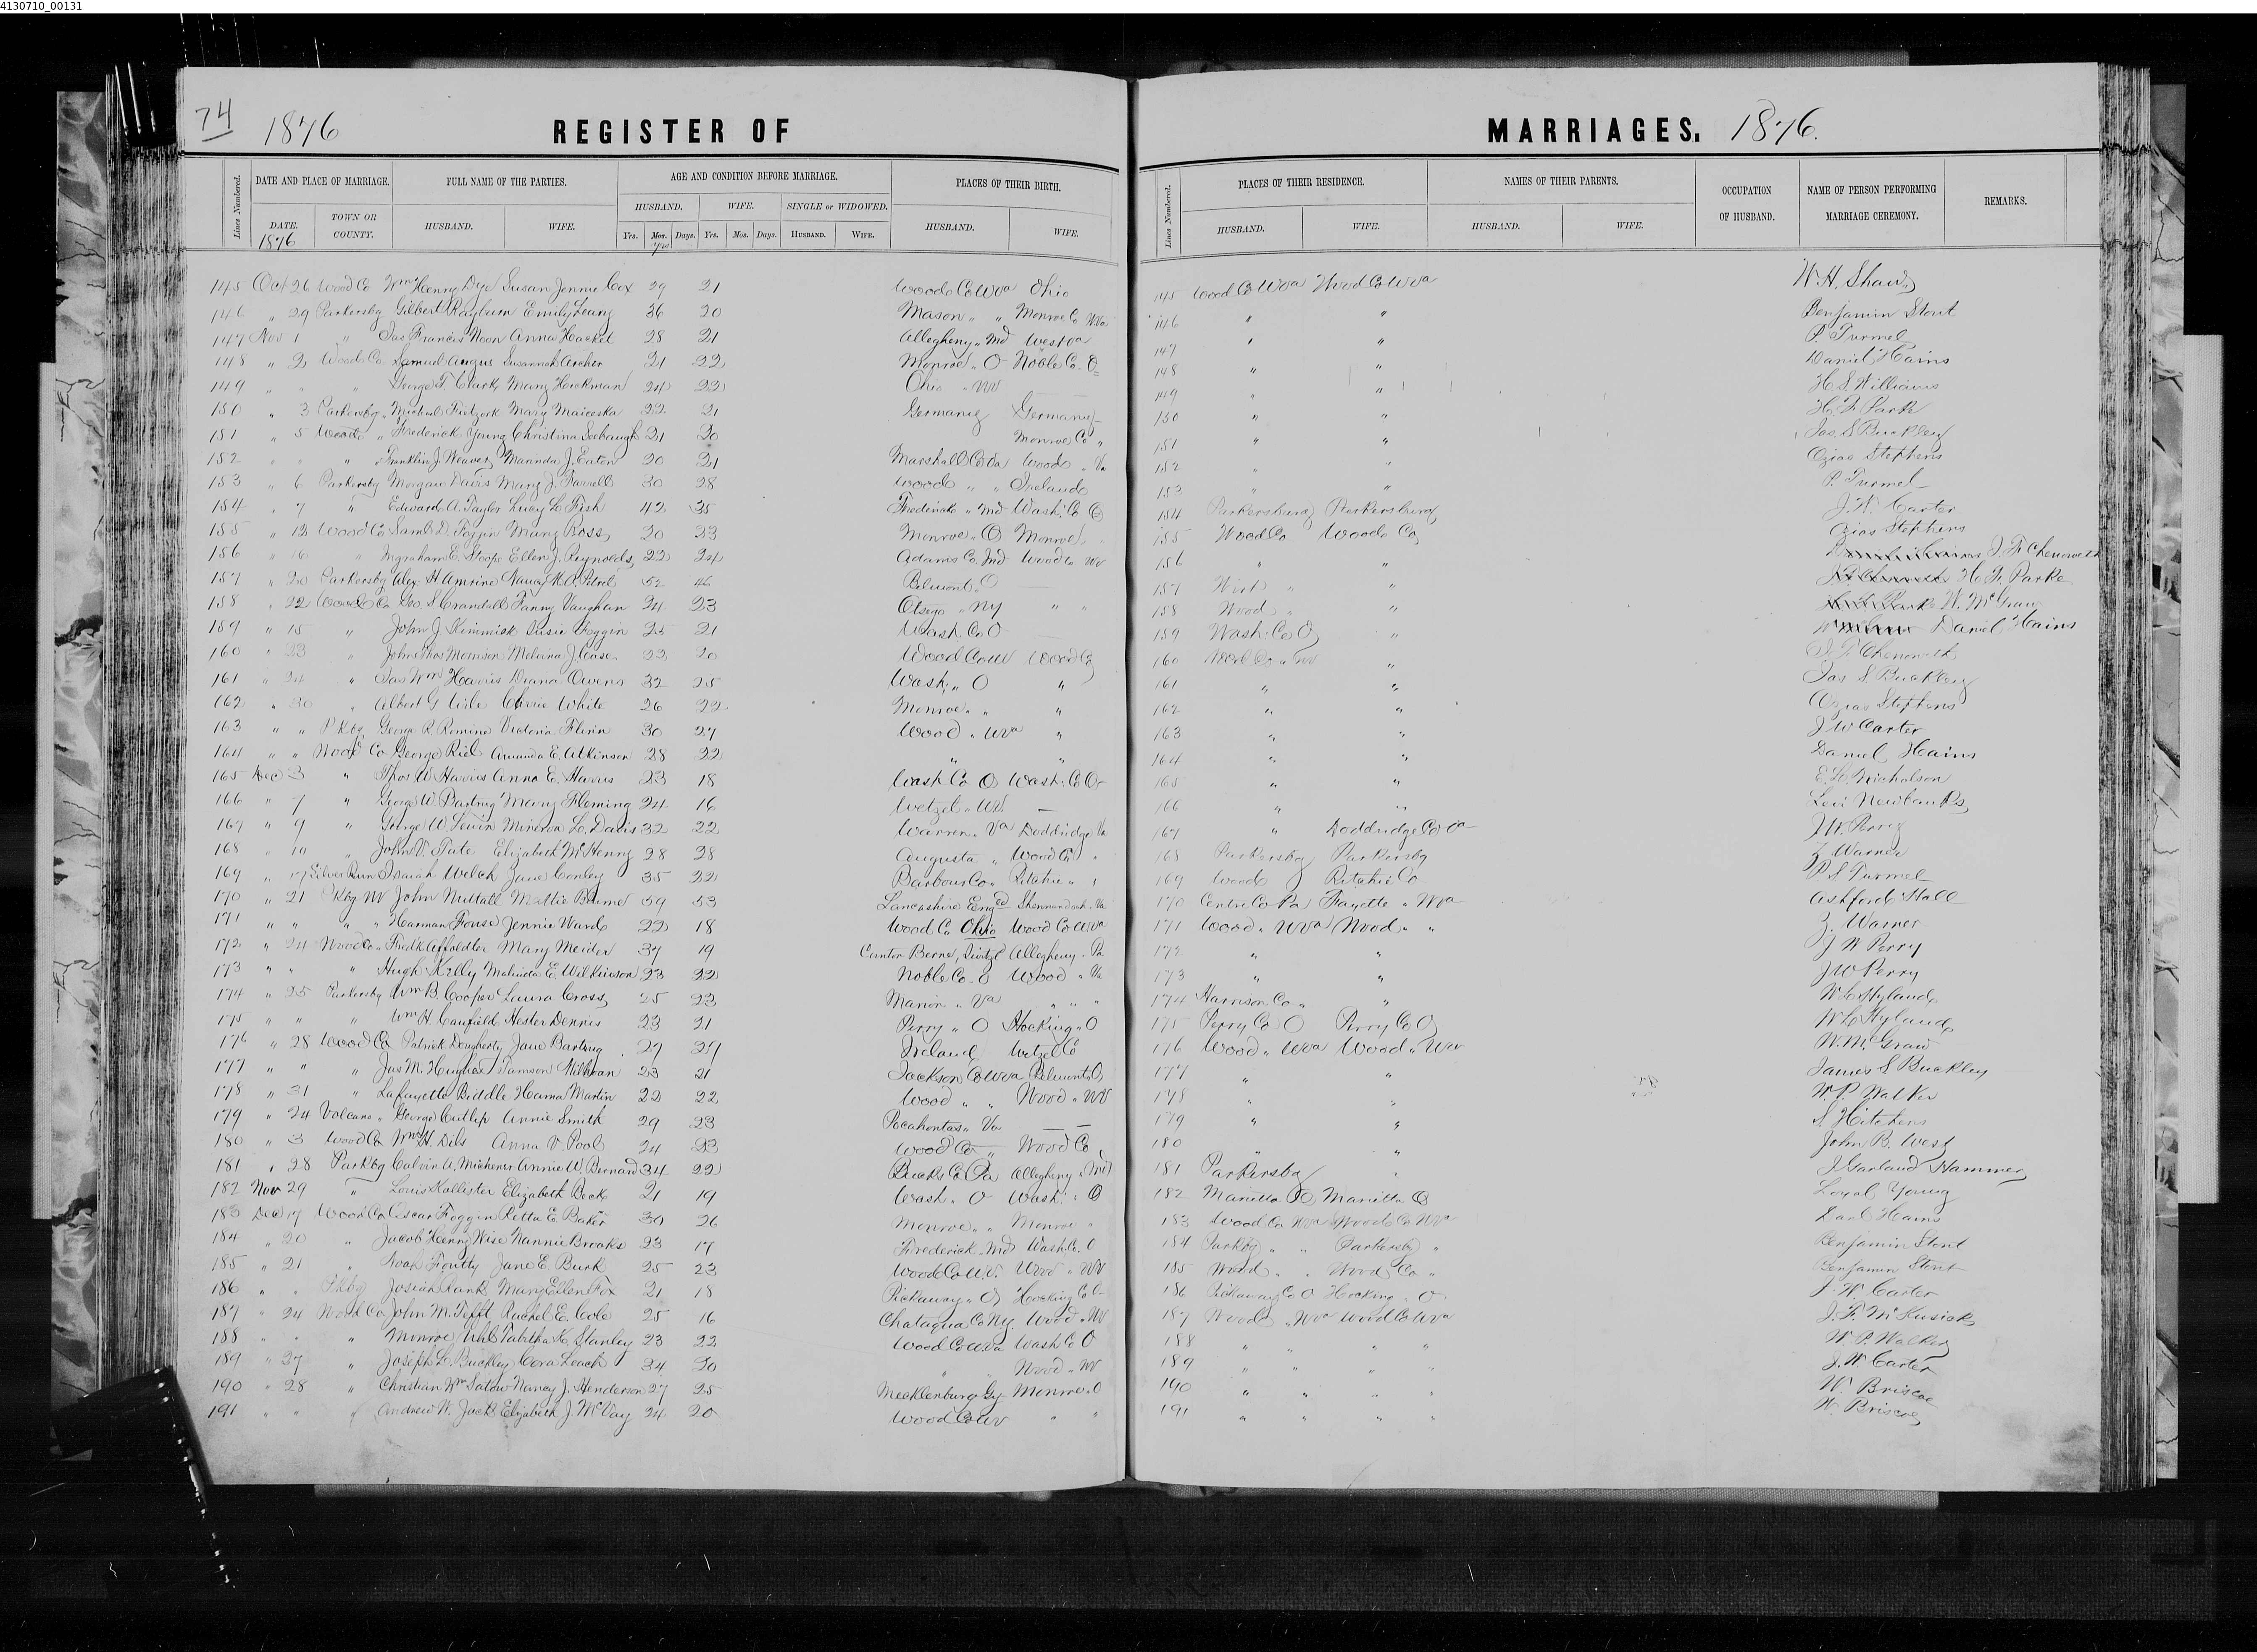 4130710_00131
74 1876 REGISTER OF
Lines Numbered. DATE AND PLACE OF MARRIAGE. FULL NAME OF THE PARTIES. AGE AND CONDITION BEFORE MARRIAGE. PLACES OF THEIR BIRTH.
HUSBAND. WIFE. SINGLE or WIDOWED.
DATE. TOWN OR COUNTY. HUSBAND. WIFE. Yrs. Mos. Days. Yrs. Mos. Days. HUSBAND. WIFE. HUSBAND. WIFE.
1876
145 Oct 26 Wood Co Wm Henry Dye Susan Jennie Cox 29 21 Wood Co WVa Ohio
146 " 29 Parkersbg Gilbert Rayburn Emily Leary 36 20 Mason " " Monroe Co WVa
147 Nov 1 " Jas Francis Noon Anna Hackel 28 21 Allegheny " Md West Va
148 " 2 Wood Co Samuel Angus Susannah Archer 21 22 Monroe " O Noble Co O
149 " " " George T. Clark Mary Hickman 24 22 Ohio " WV
150 " 3 Parkersbg Michael Mary 22 21 Germany Germany
151 " 5 Wood " Frederick Young Christina Seebaugh 21 20 Monroe Co "
152 " " " Franklin J. Weaver Marinda J. Eaton 20 21 Marshall Co Va Wood " Va
153 " 6 Parkersbg Morgan Davis Mary J. Farrell 30 28 Wood " " Ireland
154 " 7 " Edward A. Taylor Lucy L. Fish 42 35 Frederick " Md Wash. Co O
155 " 12 Wood Co Saml D. Foggin Mary Ross 20 23 Monroe " O Monroe
156 " 16 " Ingraham E. Stoops Ellen J. Reynolds 22 24 Adams Co Ind Wood Co WV
157 " 20 Parkersbg Alex H Amrine Nancy 52 46 Belmont " O —
158 " 22 Wood Co Geo. S Crandall Fanny Vaughan 24 23 Otsego " NY " "
159 " 15 " John J. Kimmick Susie Foggin 25 21 Wash. Co O —
160 " 23 " John Thos Morrison Melvina J. Case 22 20 Wood Co WV Wood Co
161 " 24 " Jas Wm Harris Diana Owens 32 25 Wash. " O "
162 " 30 " Albert G. Carrie White 26 22 Monroe " " "
163 " " Pkbg George R. Romine Victoria Flinn 30 27 Wood " WVa "
164 " " Wood Co George Riel Amanda E. Atkinson 28 22 " "
165 Dec 3 " Thos W Harris Anna E. Harris 23 18 Wash Co O Wash. Co O
166 " 7 " George W. Bartrug Mary Fleming 24 16 Wetzel " WV —
167 " 9 " George W. Lewin Minerva L. Davis 32 22 Warren " Va Doddridge Va
168 " 10 " John V. Tate Elizabeth McHenry 28 28 Augusta " Wood Co "
169 " 17 Silver Run Isaiah Welch Jane Conley 35 22 Barbour Co " Ritchie " "
170 " 21 Pkbg WV John Nuttall Mattie Blume 59 53 Lancashire Engd Shennandoah Va
171 " " " " Harman Fouse Jennie Ward 22 18 Wood Co Ohio Wood Co WVa
172 " 24 Wood Co " Fredk Affoldter Mary Meider 37 19 Canton Berne, Switzd Allegheny Pa
173 " " " Hugh Kelly Malinda E. Wilkinson 23 22 Noble Co O Wood " Va
174 " 25 Parkersbg Wm B. Cooper Laura Cross 25 23 Marion " Va " " "
175 " " " Wm H. Caufield Hester Dennis 23 21 Perry " O Hocking " O
176 " 28 Wood Co Patrick Dougherty Jane Bartrug 27 27 Ireland Wetzel Co
177 " " " Jas M. Hughes Tamson Milhoan 23 21 Jackson Co WVa Belmont O
178 " 31 " Lafayette Biddle Hanna Martin 22 22 Wood " " Wood " WV
179 " 24 Volcano " George Cutlip Annie Smith 29 23 Pocahontas " Va —
180 " 3 Wood Co Wm H. Dils Anna V. Pool 24 23 Wood Co Wood Co
181 " 28 Parkbg Calvin A. Michener Annie W. Bernard 34 22 Bucks Co Pa Allegheny " Md
182 Nov 29 " Louis Hallister Elizabeth Beck 21 19 Wash " O Wash. " O
183 Dec 17 Wood Co Oscar Foggin Retta E. Baker 30 26 Monroe " " Monroe "
184 " 20 " Jacob Henry Wise Nannie Brooks 23 17 Frederick " Md Wash. Co. O
185 " 21 " Noah Jane E. Burk 25 23 Wood Co W.V. Wood " WV
186 " " Pkbg Josiah Rank Mary Ellen Fox 21 18 Pickaway " O Hocking Co O
187 " 24 Wood Co John M. Tefft Rachel E. Cole 25 16 Chataqua Co N.Y. Wood " WV
188 " " " Monroe Uhl Tabitha K. Stanley 23 22 Wood Co W.Va Wash Co O
189 " 27 " Joseph L. Buckley Cora Leach 34 20 " Wood " WV
190 " 28 " Christian Wm Satow Nancy J. Henderson 27 25 Mecklenburg Gy Monroe " O
191 " " " Andrew W. Jack Elizabeth J. McVay 24 20 Wood Co WV " "
MARRIAGES. 1876.
Lines Numbered. PLACES OF THEIR RESIDENCE. NAMES OF THEIR PARENTS. OCCUPATION OF HUSBAND. NAME OF PERSON PERFORMING MARRIAGE CEREMONY. REMARKS.
HUSBAND. WIFE. HUSBAND. WIFE.
145 Wood Co WVa Wood Co WVa W.H. Shaw
146 " " Benjamin Stout
147 " " P. Turmel
148 " " Daniel Hains
149 " " H.S. Williams
150 " " H.F. Parke
151 " " Jas. S Buckley
152 " " Ozias Stephens
153 " " P. Turmel
154 Parkersburg Parkersburg J.W. Carter
155 Wood Co Wood Co Ozias Stephens
156 " " J.F. Chenoweth
157 Wirt " " H.F. Parke
158 Wood " " W. McGraw
159 Wash. Co O " Daniel Hains
160 Wood Co " WV " J.F. Chenoweth
161 " " Jas S Buckley
162 " " Ozias Stephens
163 " " J W Carter
164 " " Daniel Hains
165 " " E.H. Nicholson
166 " " Levi Newbanks
167 " Doddridge Co Va J.W. Perry
168 Parkersbg Parkersbg Z. Warner
169 Wood Ritchie Co P S Turmel
170 Centre Co Pa Fayette " WVa Ashford Hall
171 Wood " WVa Wood " " Z. Warner
172 " " J W Perry
173 " " J W Perry
174 Harrison Co " " W L Hyland
175 Perry Co O Perry Co O W L Hyland
176 Wood " WVa Wood " WV W. McGraw
177 " " James S Buckley
178 " " W.P. Walker
179 " " S Hitchens
180 " " John B. West
181 Parkersbg " J. Garland Hammer
182 Marietta O Marietta O Loyal Young
183 Wood Co WVa Wood Co WVa Danl Hains
184 Parkbg " " Parkersbg " Benjamin Stout
185 Wood " " Wood Co " Benjamin Stout
186 Pickaway Co O Hocking " O J. W. Carter
187 Wood " WVa Wood Co WVa J.F. McKusick
188 " " " " W.P. Walker
189 " " " " J.W. Carter
190 " " " " W. Briscoe
191 " " " " W. Briscoe